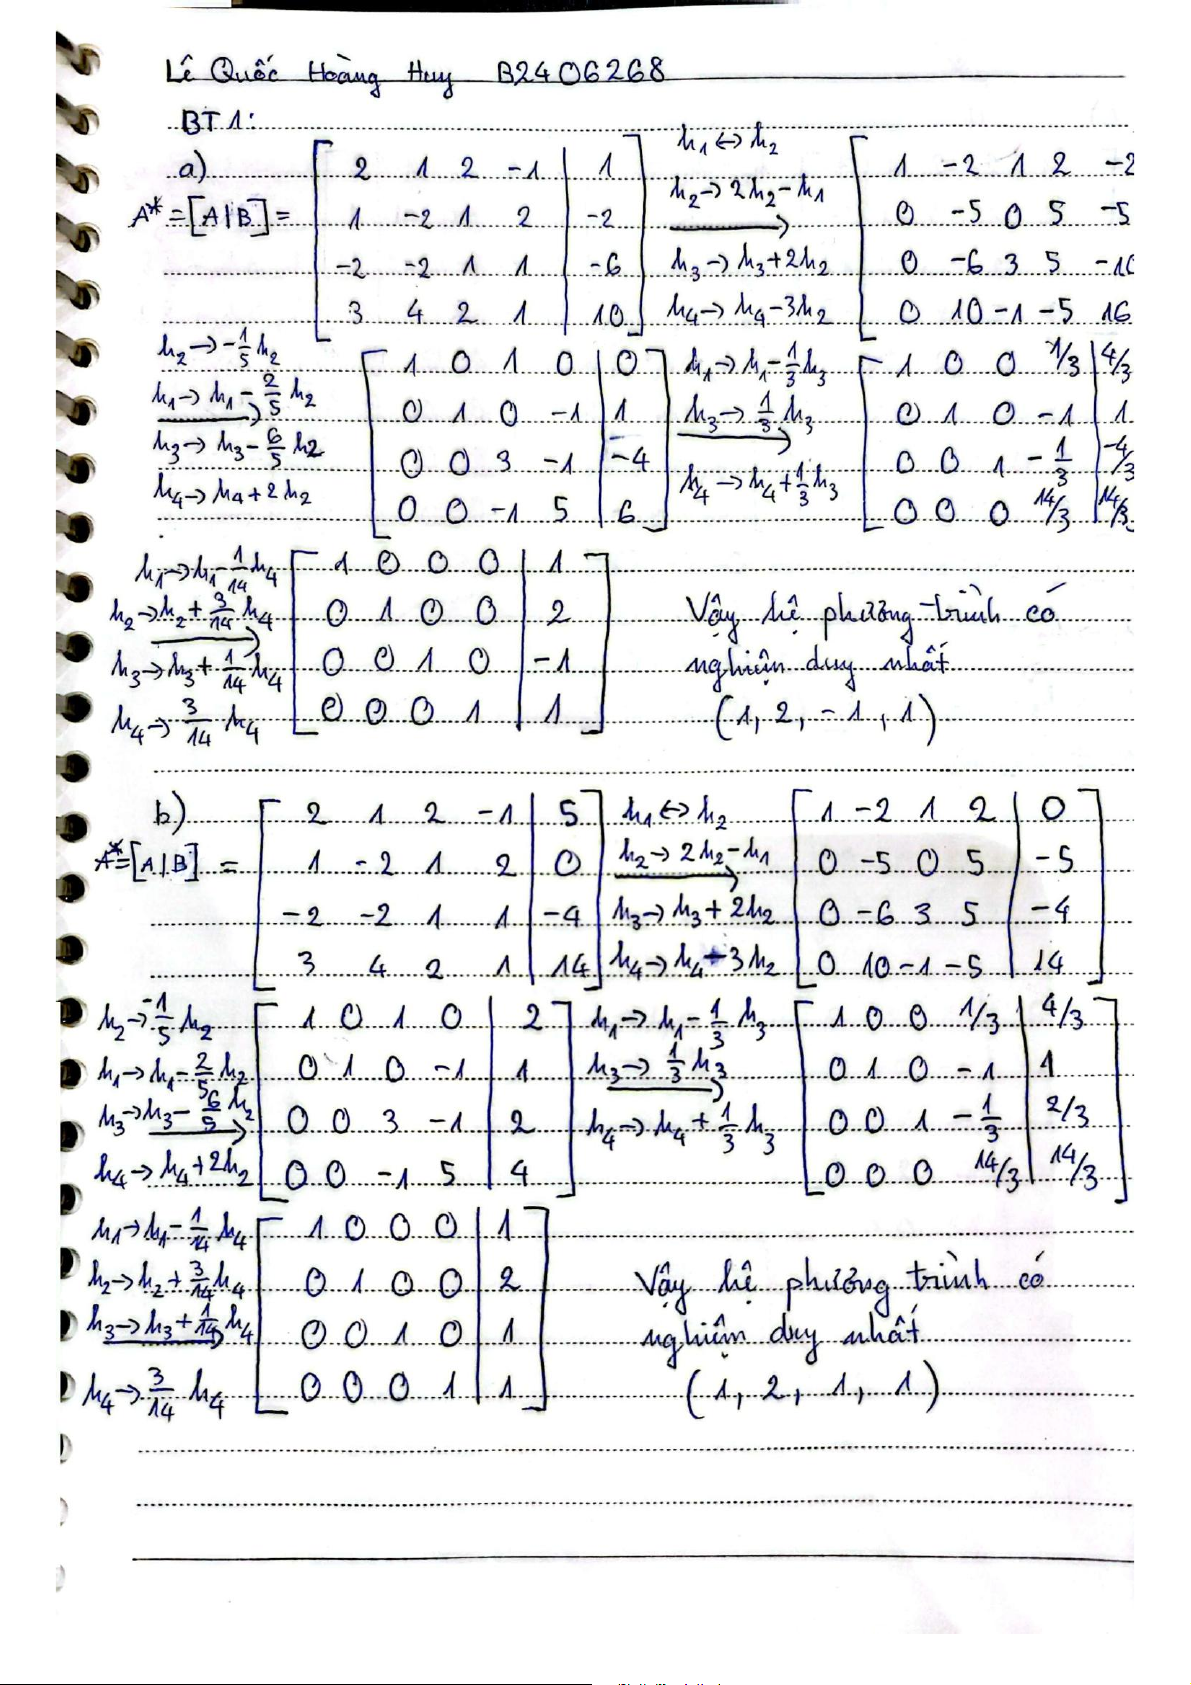 Lê Quốc Hoàng Huy B2406268
BT1:
a)
A* = [A|B] =
2 1 2 -1 | 1
1 -2 1 2 | -2
-2 -2 1 1 | -6
3 4 2 1 | 10
h1 ↔ h2
h2 → 2h2 - h1
h3 → h3 + 2h2
h4 → h4 - 3h2
1 -2 1 2 -2
0 -5 0 5 -5
0 -6 3 5 -10
0 10 -1 -5 16
h2 → -1/5 h2
h1 → h1 - 2/5 h2
h3 → h3 - 6/5 h2
h4 → h4 + 2h2
1 0 1 0 | 0
0 1 0 -1 | 1
0 0 3 -1 | -4
0 0 -1 5 | 6
h1 → h1 - 1/3 h3
h3 → 1/3 h3
h4 → h4 + 1/3 h3
1 0 0 1/3 | 4/3
0 1 0 -1 | 1
0 0 1 -1/3 | -4/3
0 0 0 14/3 | 14/3
h1 → h1 - 1/14 h4
h2 → h2 + 3/14 h4
h3 → h3 + 1/14 h4
h4 → 3/14 h4
1 0 0 0 | 1
0 1 0 0 | 2
0 0 1 0 | -1
0 0 0 1 | 1
Vậy hệ phương trình có
nghiệm duy nhất
(1, 2, -1, 1)
b)
A* = [A|B] =
2 1 2 -1 | 5
1 -2 1 2 | 0
-2 -2 1 1 | -4
3 4 2 1 | 14
h1 ↔ h2
h2 → 2h2 - h1
h3 → h3 + 2h2
h4 → h4 - 3h2
1 -2 1 2 | 0
0 -5 0 5 | -5
0 -6 3 5 | -4
0 10 -1 -5 | 14
h2 → -1/5 h2
h1 → h1 - 2/5 h2
h3 → h3 - 6/5 h2
h4 → h4 + 2h2
1 0 1 0 | 2
0 1 0 -1 | 1
0 0 3 -1 | 2
0 0 -1 5 | 4
h1 → h1 - 1/3 h3
h3 → 1/3 h3
h4 → h4 + 1/3 h3
1 0 0 1/3 | 4/3
0 1 0 -1 | 1
0 0 1 -1/3 | 2/3
0 0 0 14/3 | 14/3
h1 → h1 - 1/14 h4
h2 → h2 + 3/14 h4
h3 → h3 + 1/14 h4
h4 → 3/14 h4
1 0 0 0 | 1
0 1 0 0 | 2
0 0 1 0 | 1
0 0 0 1 | 1
Vậy hệ phương trình có
nghiệm duy nhất
(1, 2, 1, 1)